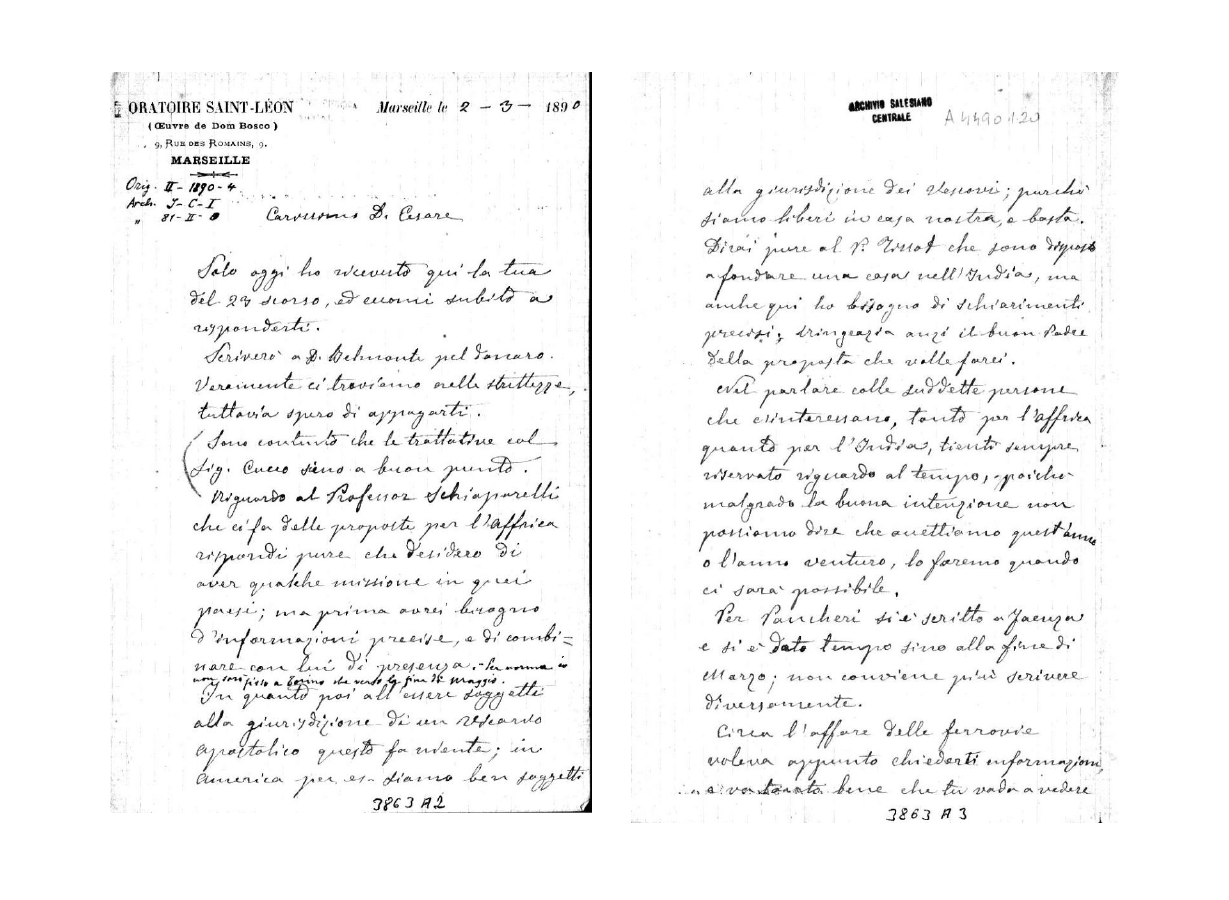 ORATOIRE SAINT-LÉON
(Œuvre de Dom Bosco)
9, RUE DES ROMAINS, 9.
MARSEILLE
Marseille le 2 - 3 - 1890
Orig. II - 1890 - 4
Arch. J - C - I
" 81 - II - 8
Carissimo D. Cesare
Solo oggi ho ricevuto qui la tua
del 23 scorso, ed eccomi subito a
risponderti.
Scriverò a D. Belmonte pel danaro.
Veramente ci troviamo nelle strettezze,
tuttavia spero di appagarti.
Sono contento che le trattative col
Sig. Cucco sieno a buon punto.
Riguardo al Professor Schiaparelli
che ci fa delle proposte per l'Affrica
rispondi pure che desidero di
aver qualche missione in quei
paesi; ma prima avrei bisogno
d'informazioni precise, e di combi=
nare con lui di presenza. - Per norma io
non sarò fisso a Torino che verso la fine di Maggio.
In quanto poi all'essere soggetti
alla giurisdizione di un Vicario
apostolico questo fa niente; in
America per es. siamo ben soggetti
3863 A2
ARCHIVIO SALESIANO
CENTRALE
A 4490120
alla giurisdizione dei Vescovi; purchè
siamo liberi in casa nostra, e basta.
Dirai pure al P. Tissot che sono disposto
a fondare una casa nell'India, ma
anche qui ho bisogno di schiarimenti
precisi; ringrazia anzi il buon Padre
della proposta che volle farci.
Nel parlare colle suddette persone
che s'interessano, tanto per l'Affrica
quanto per l'India, tienti sempre
riservato riguardo al tempo, poichè
malgrado la buona intenzione non
possiamo dire che accettiamo quest'anno
o l'anno venturo, lo faremo quando
ci sarà possibile.
Per Pancheri si è scritto a Faenza
e si è dato tempo sino alla fine di
Marzo; non conviene più scrivere
diversamente.
Circa l'affare delle ferrovie
voleva appunto chiederti informazioni,
bene che tu vada a vedere
3863 A3